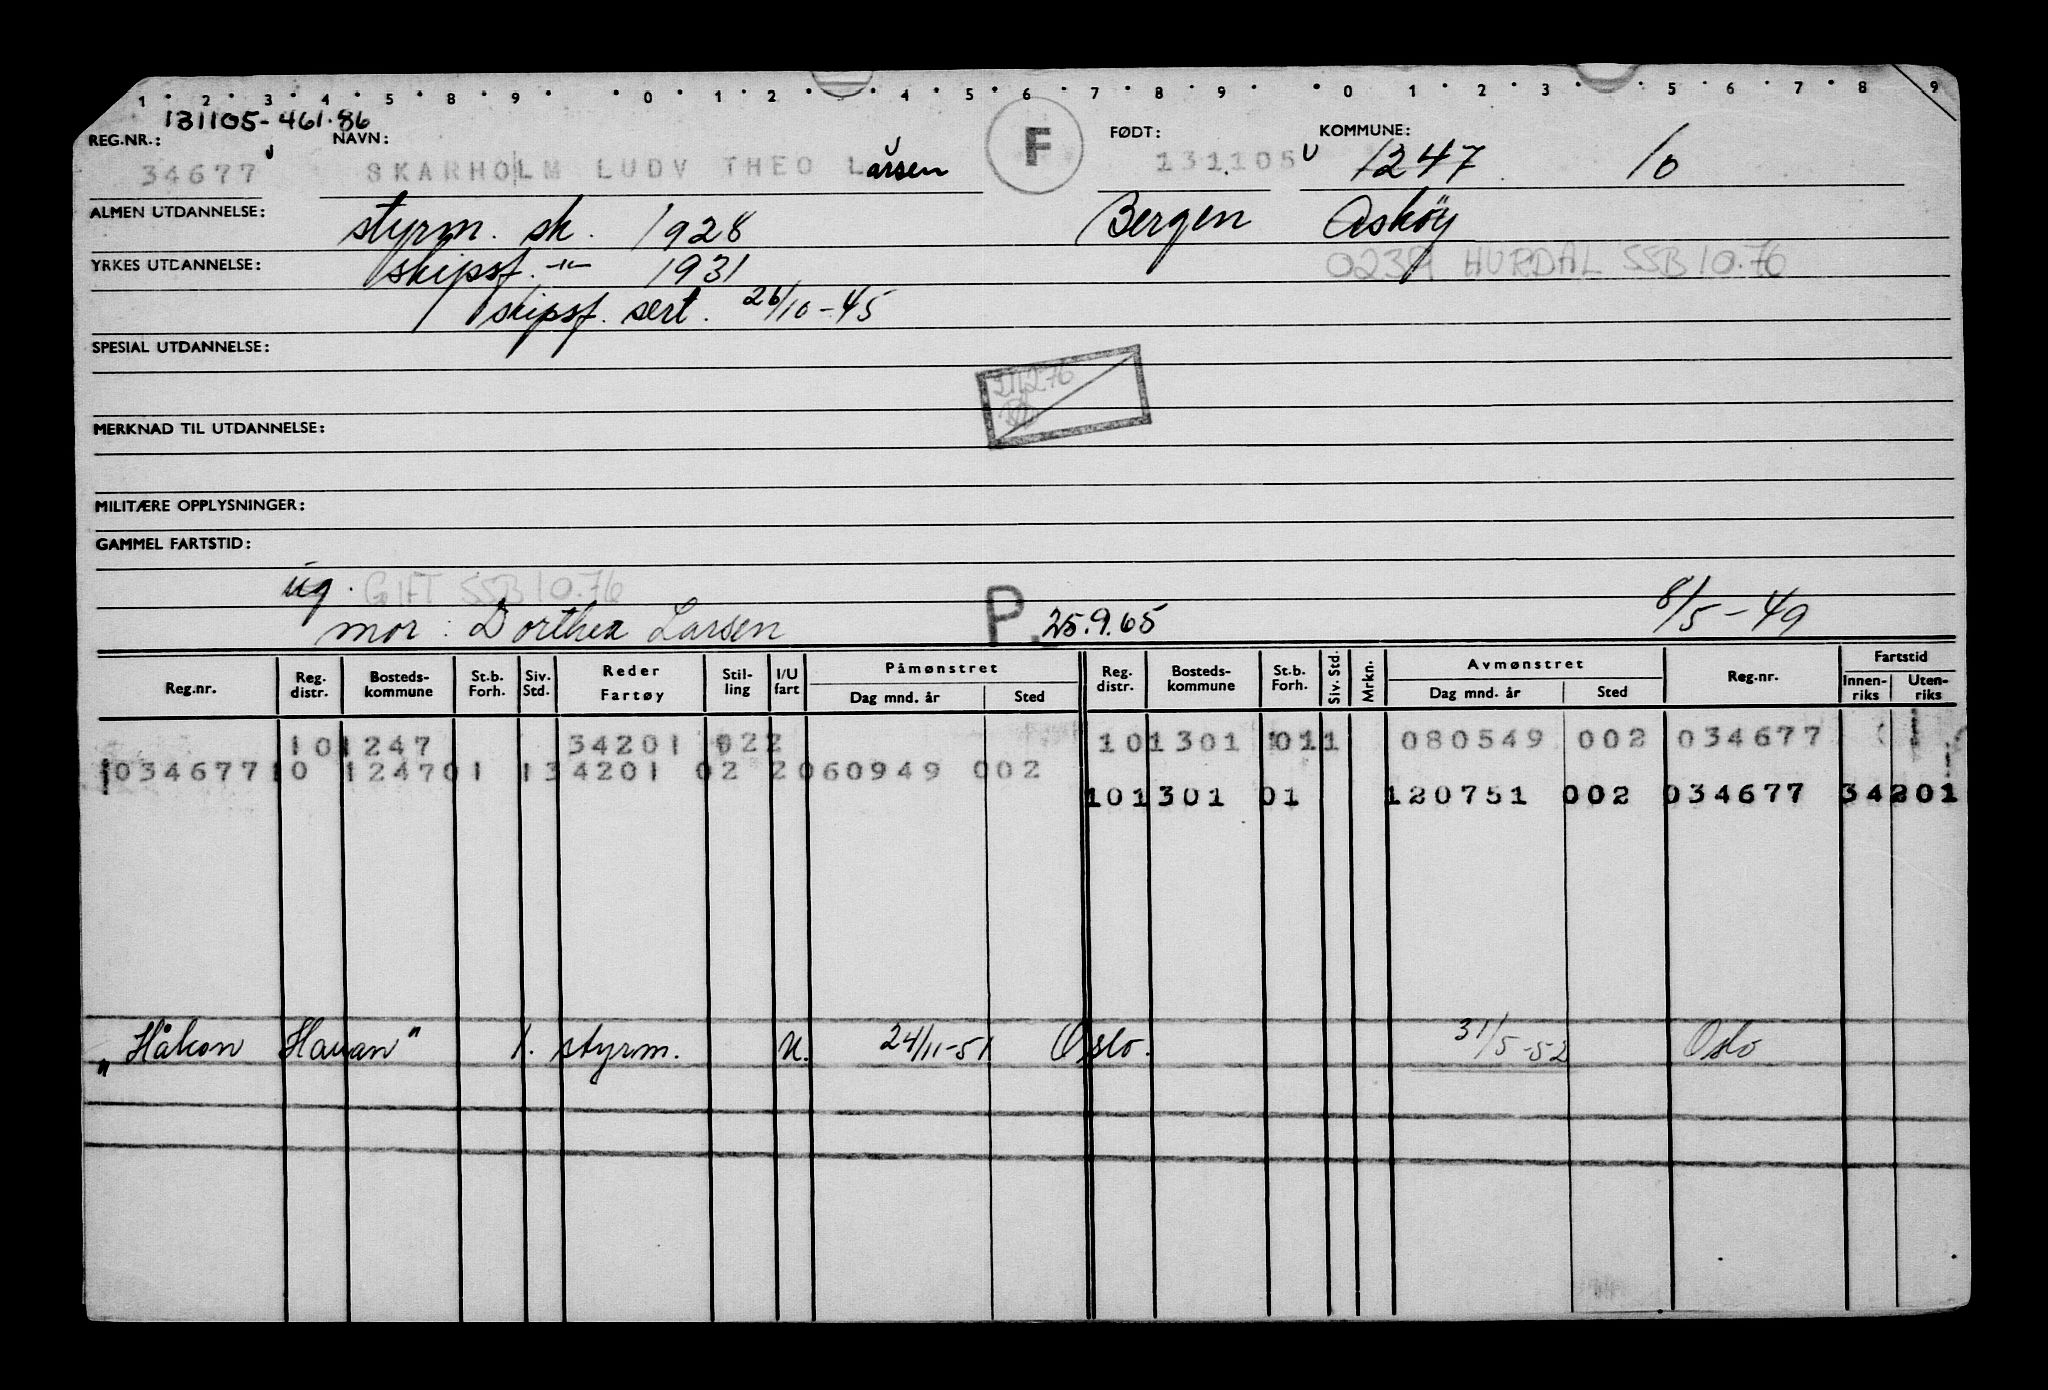 1 2 3 4 5 8 9 0 1 2 4 5 6 7 8 9 0 1 2 3 5 6 7 8 9
131105-461.86
REG.NR.: NAVN: F FØDT: KOMMUNE:
34677 SKARHOLM LUDV THEO Larsen 131105 1247 10
ALMEN UTDANNELSE: styrm. sk. 1928 Bergen Asköy
YRKES UTDANNELSE: skipsf. -"- 1931 0239 HURDAL SSB 10.76
skipsf. sert. 26/10-45
SPESIAL UTDANNELSE:
MERKNAD TIL UTDANNELSE:
MILITÆRE OPPLYSNINGER:
GAMMEL FARTSTID:
ug. GIFT SSB 10.76
mor: Dorthea Larsen P. 25.9.65 8/5-49
Reg.nr. Reg. distr. Bosteds-kommune St.b. Forh. Siv. Std. Reder Fartøy Stil-ling I/U fart Påmønstret Dag mnd. år Sted Reg. distr. Bosteds-kommune St.b. Forh. Siv. Std. Mrkn. Avmønstret Dag mnd. år Sted Reg.nr. Fartstid Innen-riks Uten-riks
10 1247 34201 022 101301 011 080549 002 034677
1034677 10 124701 134201 02 2060949 002
101301 01 120751 002 034677 34201
"Håkon Hauan" 1. styrm. u. 24/11-51 Oslo. 31/5-52 Oslo